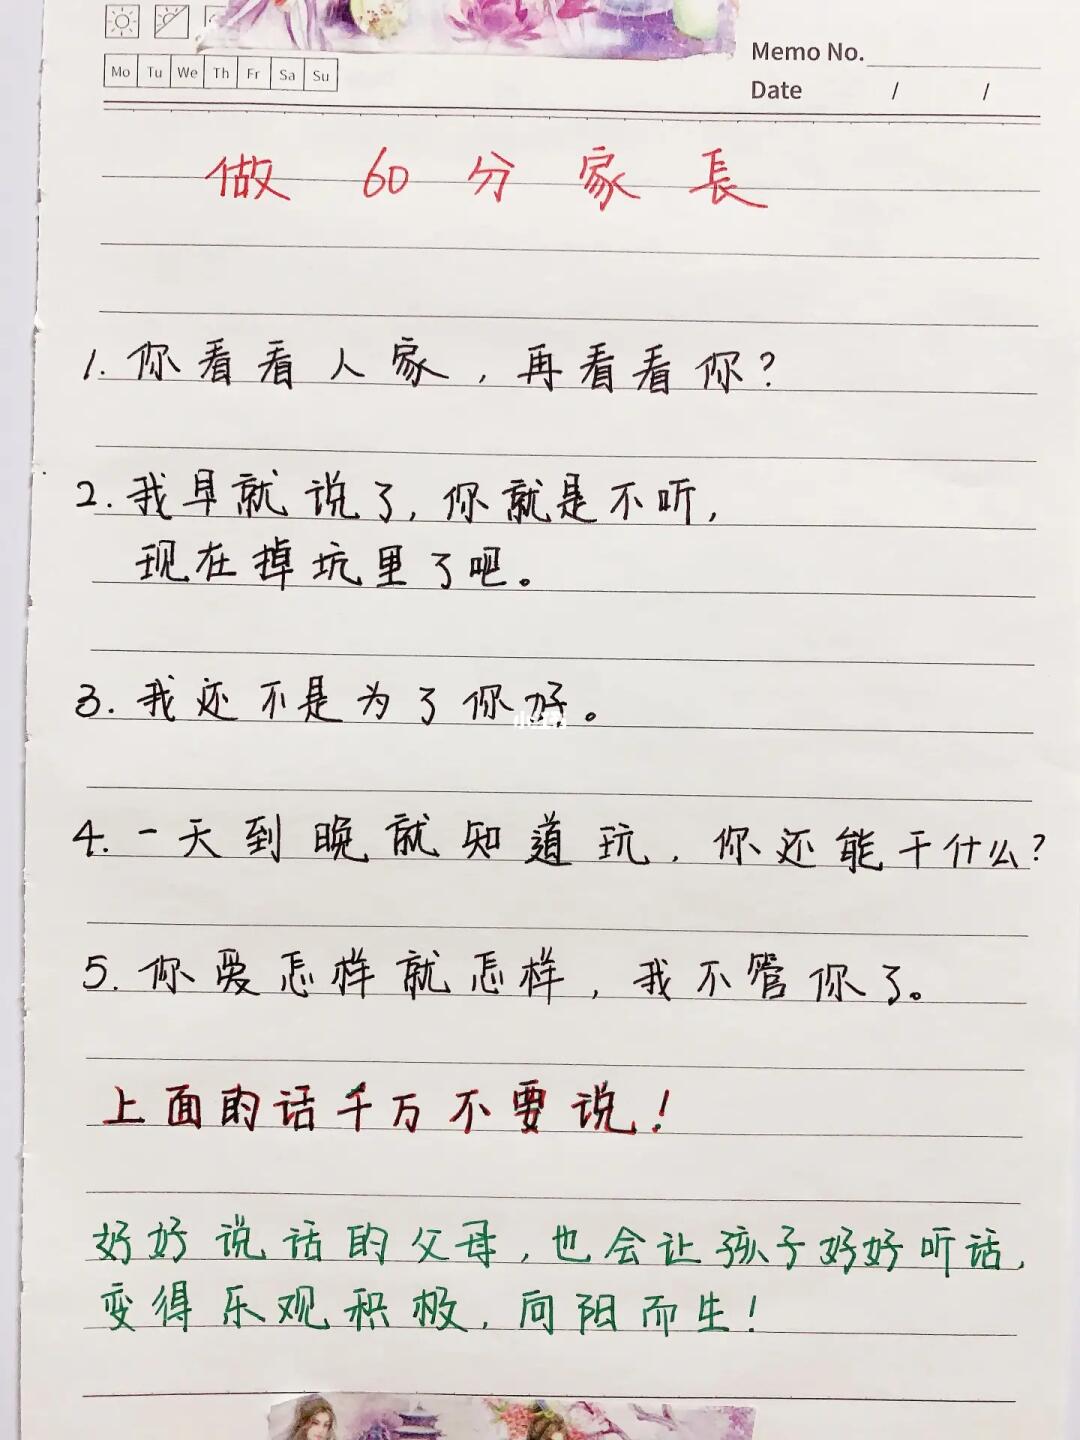 Mo Tu We Th Fr Sa Su
Memo No.
Date / /
做 60 分 家 長
1. 你看看人家，再看看你？
2. 我早就说了，你就是不听，
现在掉坑里了吧。
3. 我还不是为了你好。
4. 一天到晚就知道玩，你还能干什么？
5. 你爱怎样就怎样，我不管你了。
上面的话千万不要说！
好好说话的父母，也会让孩子好好听话，
变得乐观积极，向阳而生！